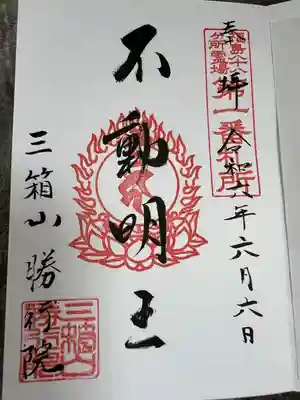 奉拝
令和六年六月六日
福島八十八ヶ所霊場
第一番札所
不動明王
三箱山勝行院